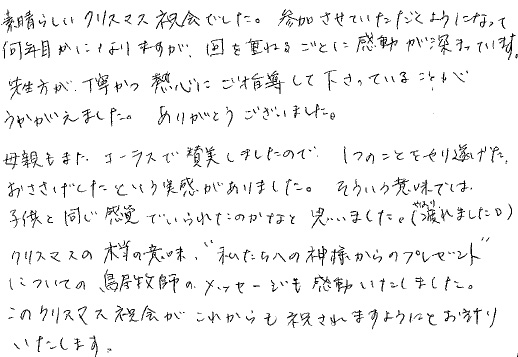 素晴らしいクリスマス祝会でした。参加させていただくようになって
何年目かになりますが、回を重ねるごとに感動が深まっています。
先生方が、丁寧かつ熱心にご指導して下さっていることが
うかがえました。ありがとうございました。
母親もまた、コーラスで賛美しましたので、1つのことをやり遂げた、
おささげしたという実感がありました。そういう意味では、
子供と同じ感覚でいられたのかなと思いました。(やはり疲れました。)
クリスマスの本当の意味、“私たちへの神様からのプレゼント”
についての鳥居牧師のメッセージも感動いたしました。
このクリスマス祝会がこれからも祝されますようにとお祈り
いたします。